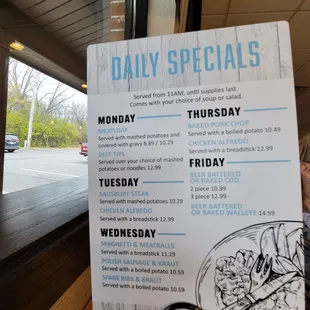 DAILY SPECIALS
Served from 11AM, until supplies last.
Comes with your choice of soup or salad.
MONDAY
MEATLOAF
Served with mashed potatoes and
covered with gravy 8.89 / 10.29
BEEF TIPS
Served over your choice of mashed
potatoes or noodles 12.99
TUESDAY
SALISBURY STEAK
Served with mashed potatoes 11.29
CHICKEN ALFREDO
Served with a breadstick 12.99
WEDNESDAY
SPAGHETTI & MEATBALLS
Served with a breadstick 11.29
POLISH SAUSAGE & KRAUT
Served with a boiled potato 10.59
SPARE RIBS & KRAUT
Served with a boiled potato 10.59
THURSDAY
BAKED PORK CHOP
Served with a boiled potato 10.99
CHICKEN ALFREDO
Served with a breadstick 12.99
FRIDAY
BEER BATTERED
OR BAKED COD
2 piece 10.99
3 piece 12.99
BEER BATTERED
OR BAKED WALLEYE 14.99